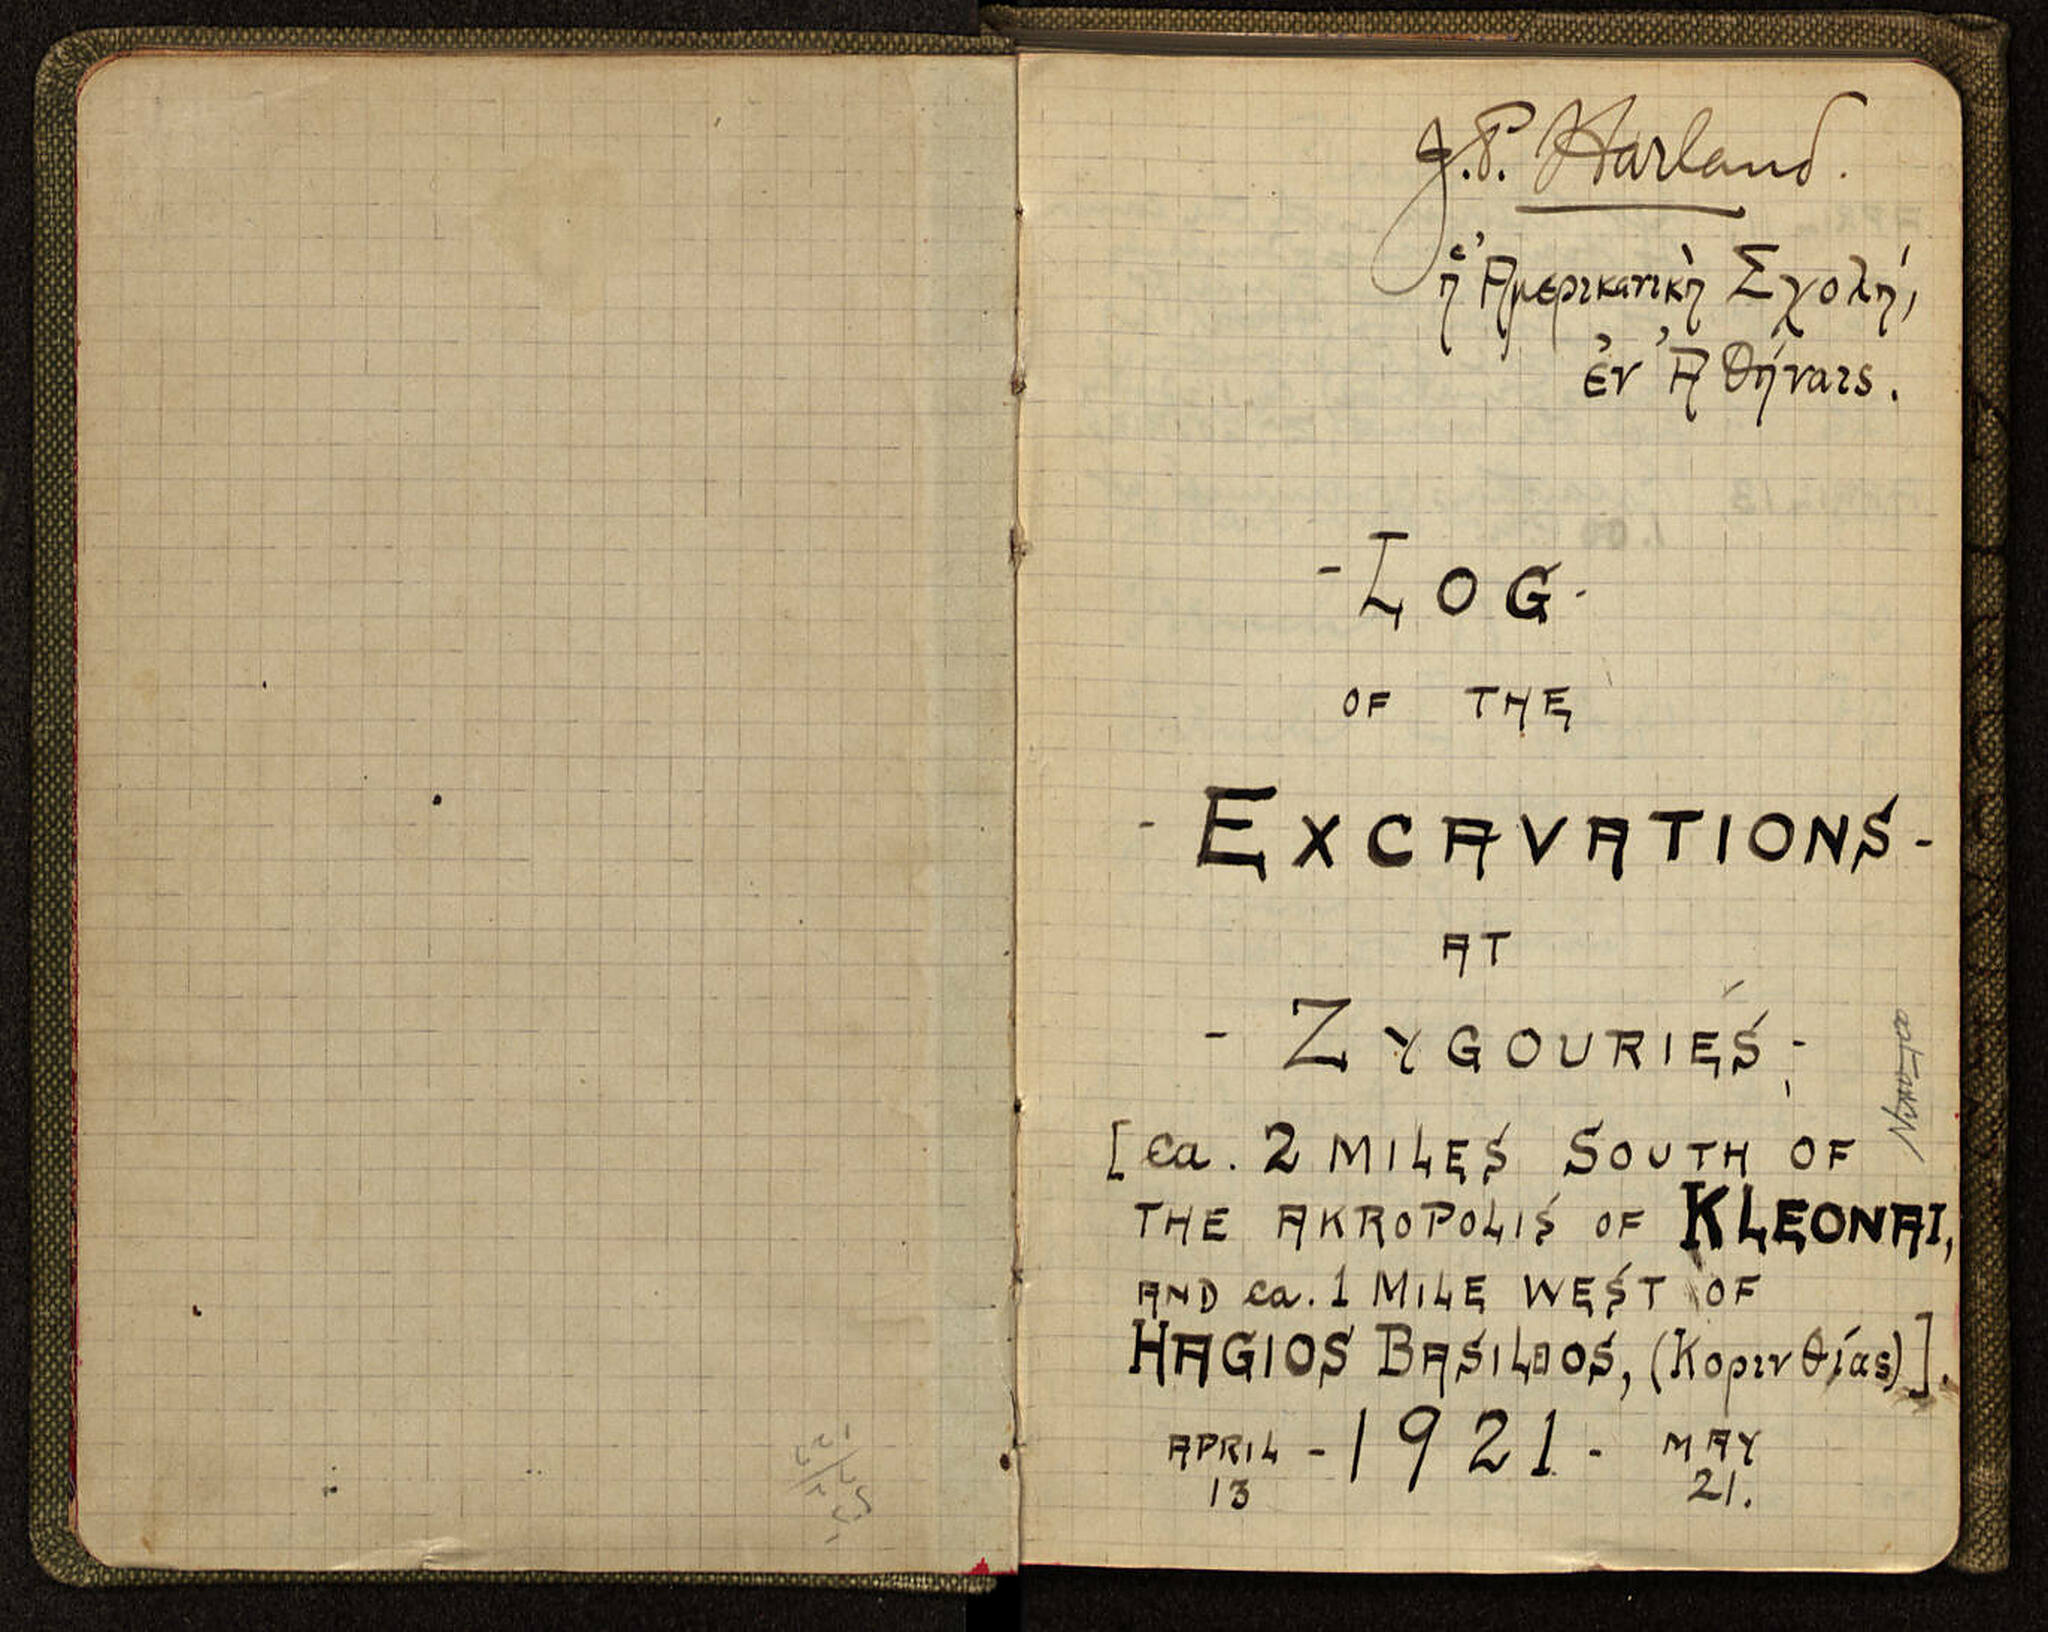 J.P. Harland.
ἡ Ἀμερικανικὴ Σχολή,
ἐν Ἀθήναις.
- LOG -
OF THE
- EXCAVATIONS -
AT
- ZYGOURIÉS, -
[ca. 2 MILES SOUTH OF
THE AKROPOLIS OF KLEONAI,
AND ca. 1 MILE WEST OF
HAGIOS BASILIOS, (Κορινθίας)].
APRIL - 1921 - MAY
13 21.